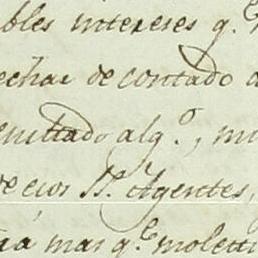 bles intereses q.e
echar de contado
enultado alg.o, m
decior S.s Agentes,
ná mas q.e molesti